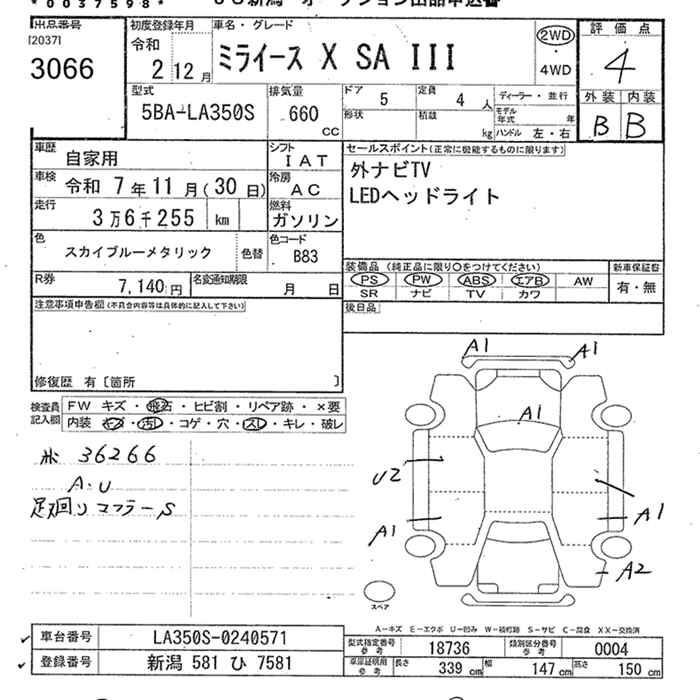 *0037598* JU新潟 オークション出品申込書
出品番号
[2037]
3066
初度登録年月
令和
2 12月
車名・グレード
ミライース X SA III
2WD
4WD
評価点
4
外装 内装
B B
型式
5BA-LA350S
排気量
660
cc
ドア
5
定員
4 人
形状
積載
kg
ディーラー・並行
モデル年式 年
ハンドル 左・右
車歴
自家用
シフト
IAT
車検
令和 7年11月(30日)
冷房
AC
走行
3万6千255 km
燃料
ガソリン
色
スカイブルーメタリック
色替
色コード
B83
R券
7,140円
名変通知期限
月 日
セールスポイント(正常に機能するものに限ります)
外ナビTV
LEDヘッドライト
装備品 (純正品に限り〇をつけてください)
PS PW ABS エアB AW
SR ナビ TV カワ
新車保証書
有・無
後日品
注意事項申告欄(不具合内容等は具体的に記入して下さい)
修復歴 有〔箇所 〕
検査員記入欄
FW キズ・飛石・ヒビ割・リペア跡・×要
内装 キズ・汚れ・コゲ・穴・スレ・キレ・破レ
36266
A.U
足廻り マフラーS
A1
A1
A1
U2
A1
A1
A2
スペア
A-キズ E-エクボ U-凹み W-補修跡 S-サビ C-腐食 XX-交換済
車台番号
LA350S-0240571
登録番号
新潟 581 ひ 7581
型式指定番号 参考
18736
類別区分番号 参考
0004
車庫証明用 参考
長さ 339 cm
幅 147 cm
高さ 150 cm